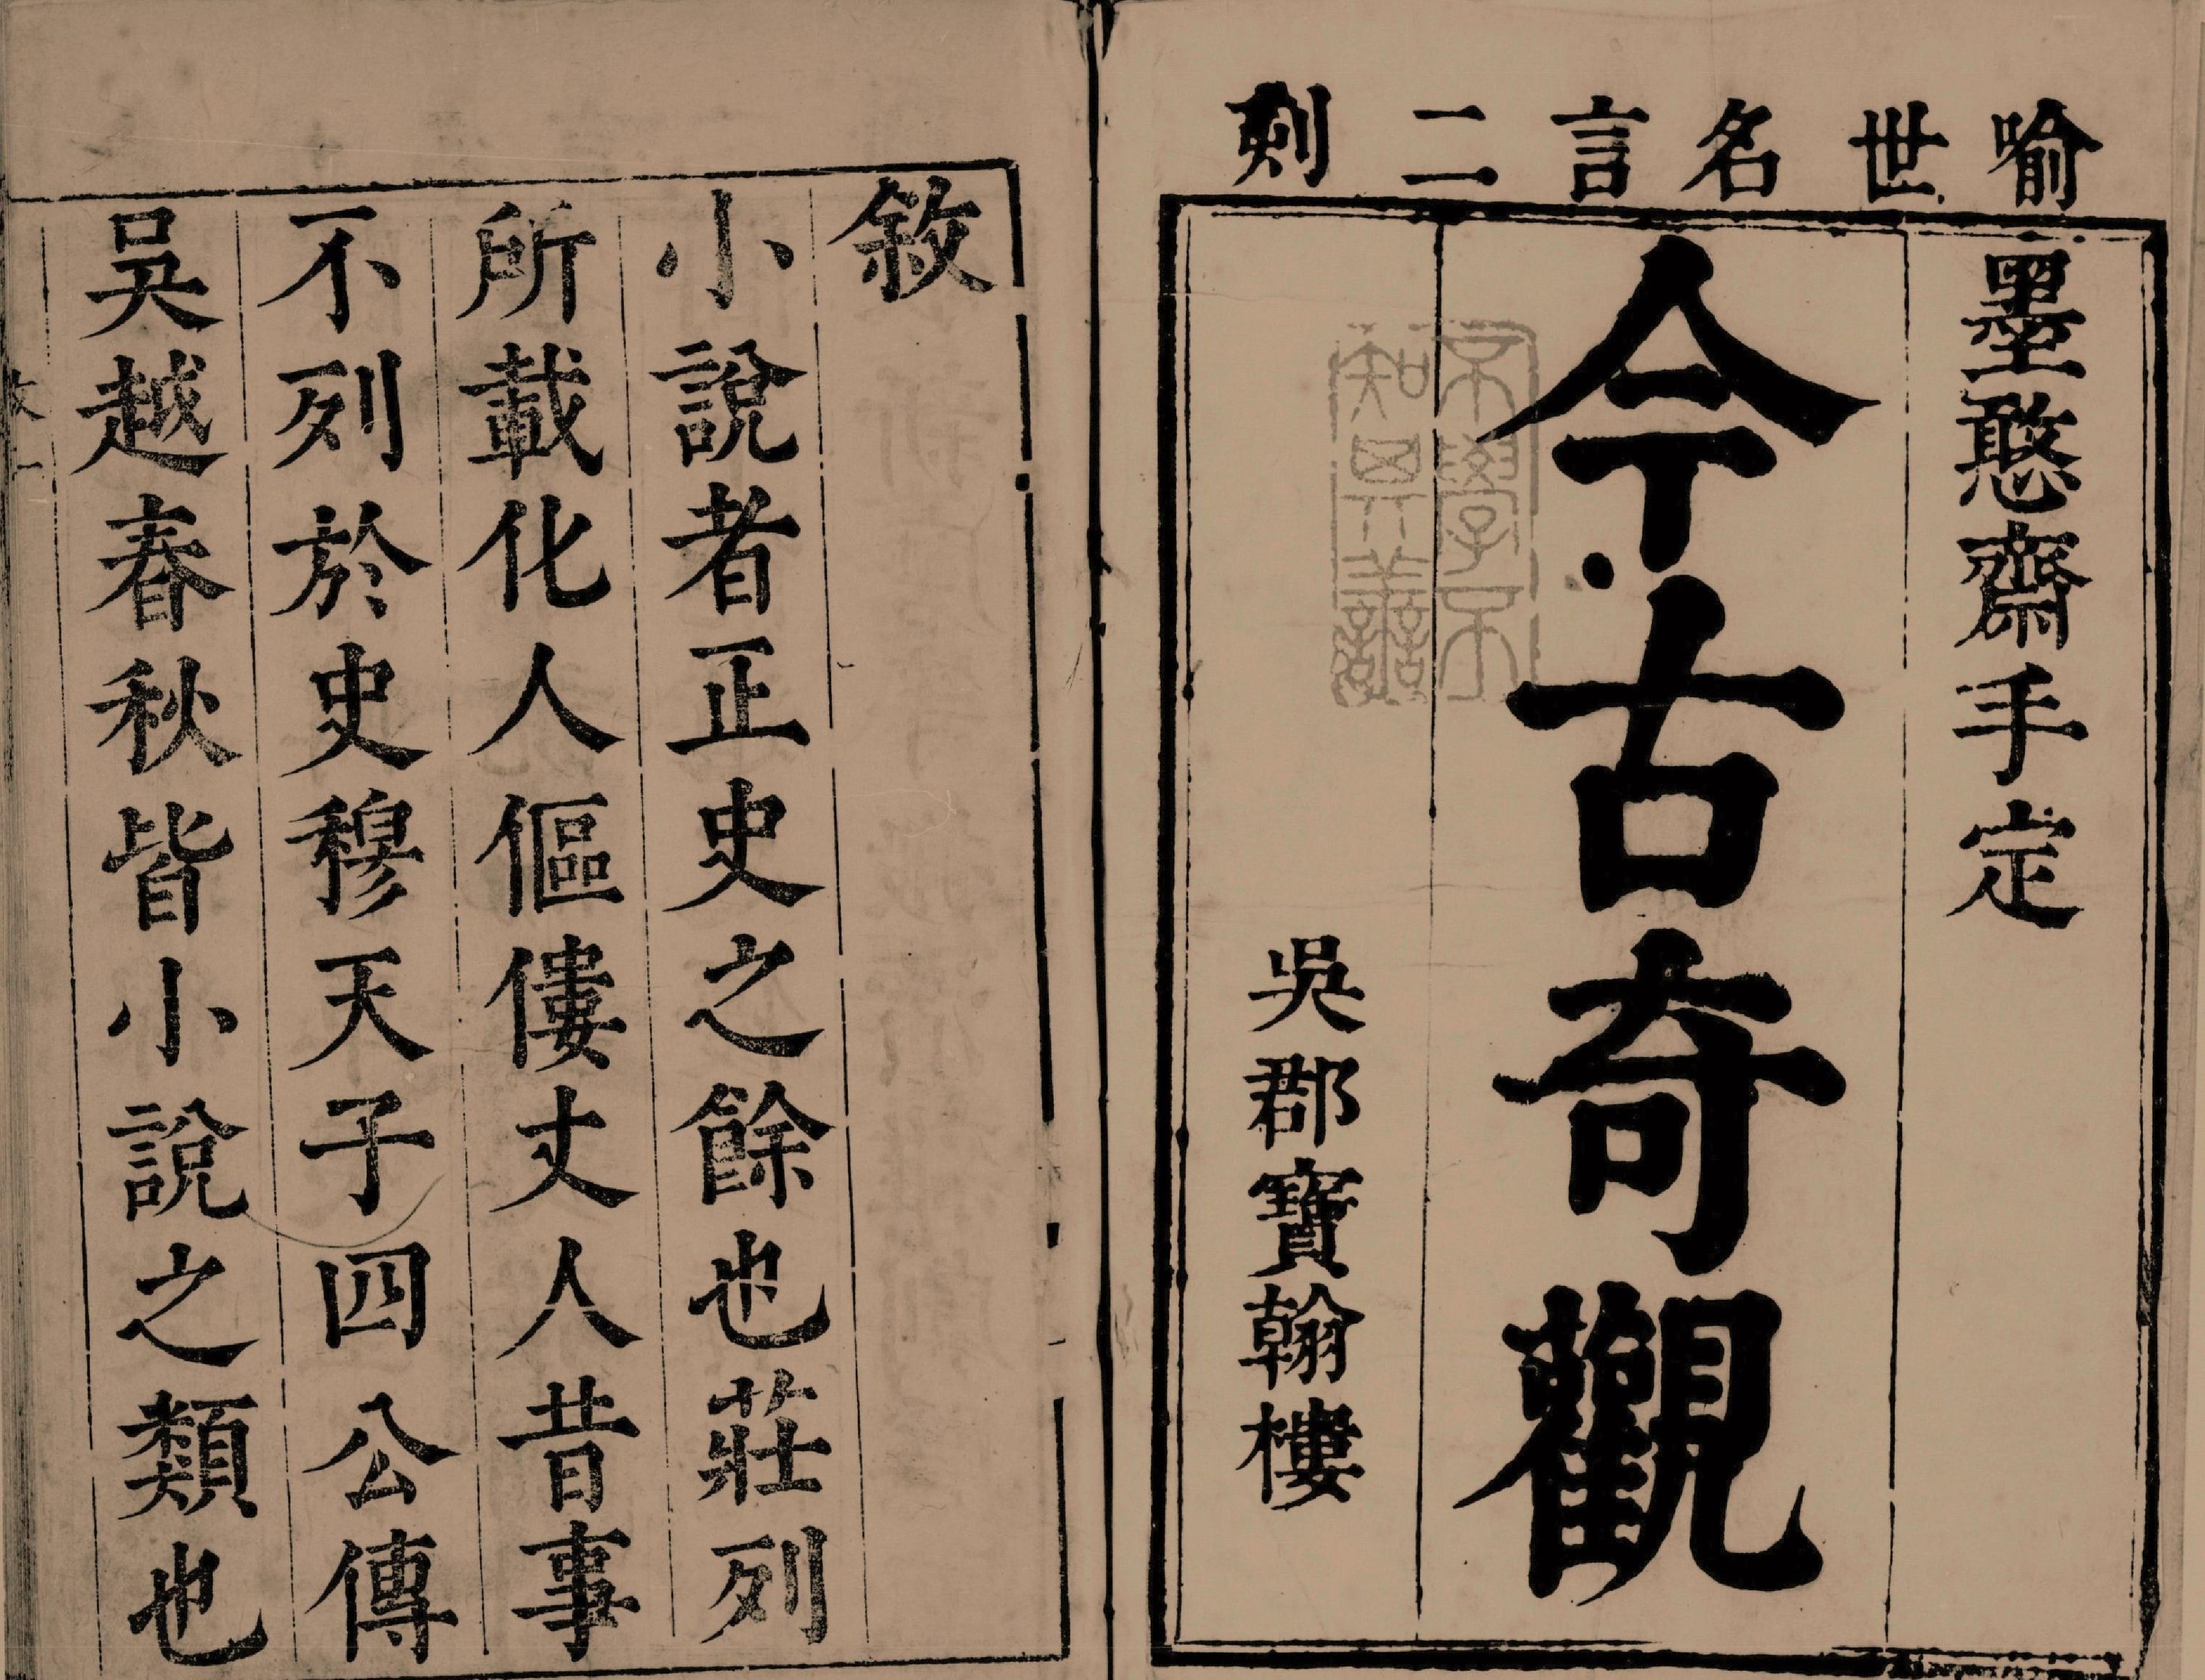 喻世名言二刻
墨憨齋手定
今古奇觀
吳郡寶翰樓
不學不
知其善譱
敘
小說者正史之餘也莊列
所載化人傴僂丈人昔事
不列於史穆天子四公傳
吳越春秋皆小說之類也